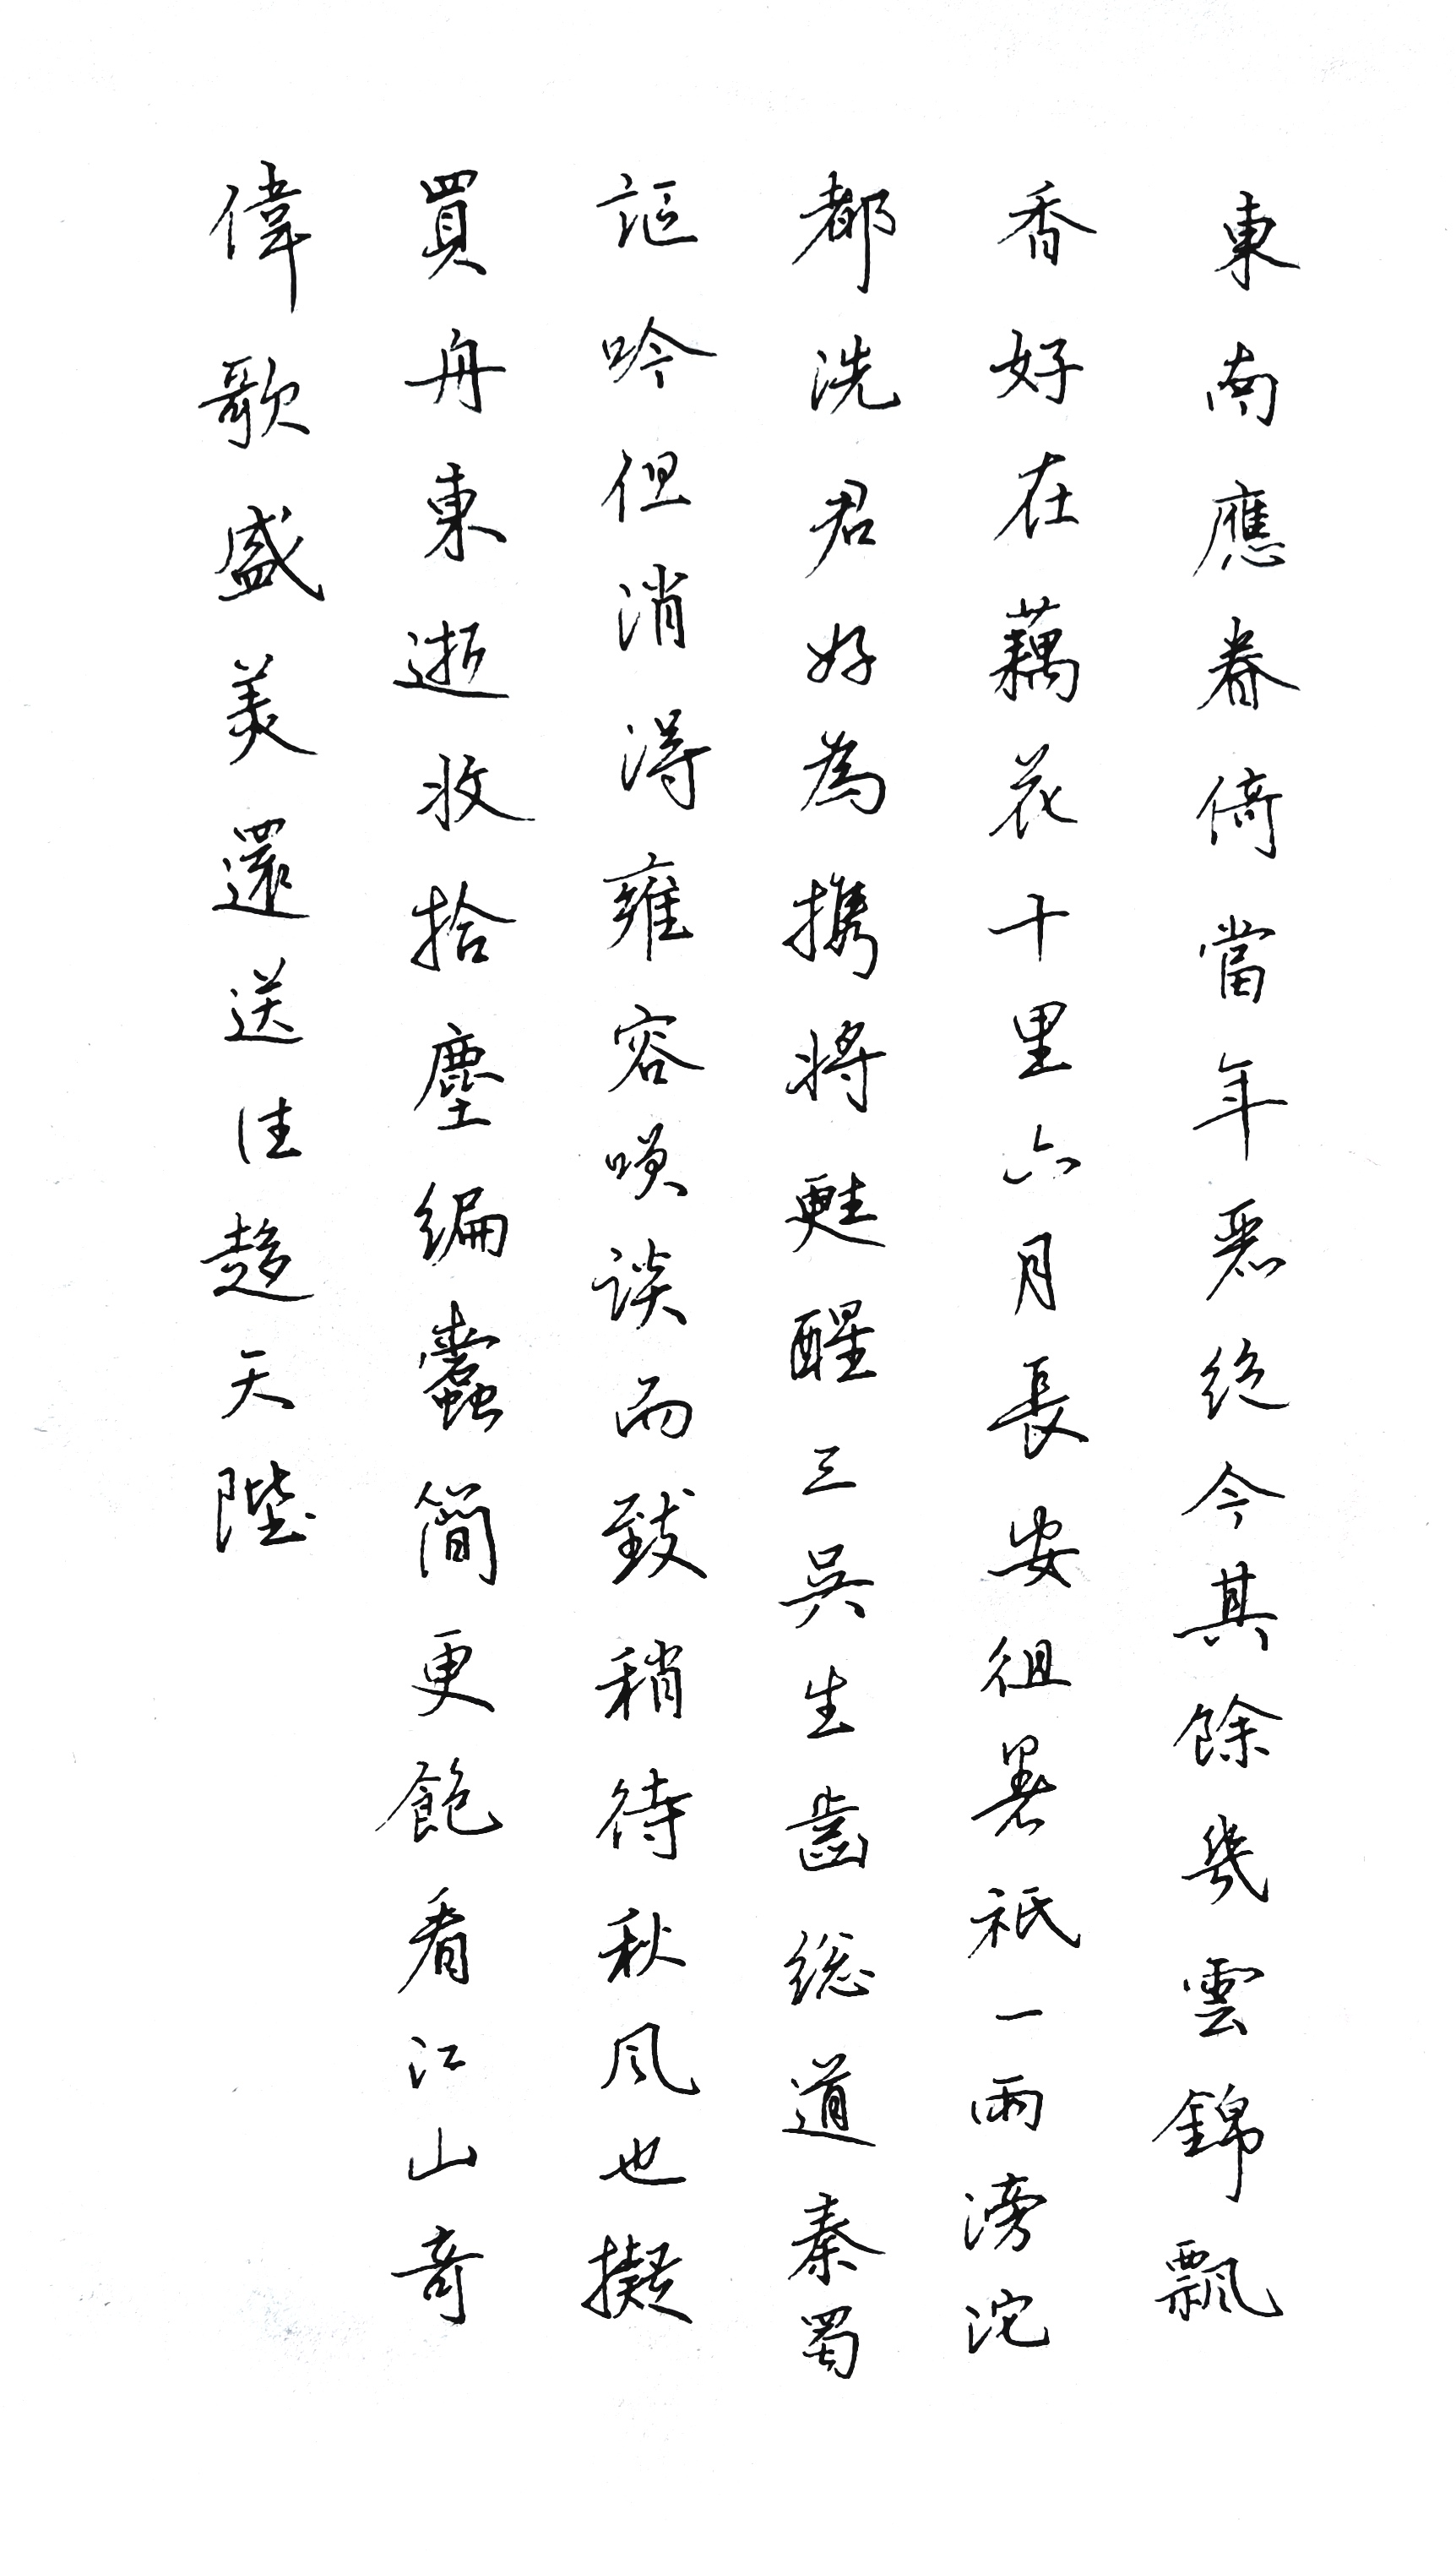 東南應眷倚當年惡绝今其餘幾雲錦飄
香好在藕花十里六月長安徂暑祇一雨滂沱
都洗君好為攜將甦醒三吳生齒総道秦蜀
謳吟但消得雍容嘆談而致稍待秋风也擬
買舟東逝收拾塵編蠹簡更飽看江山奇
偉歌盛美還送往趍天陛